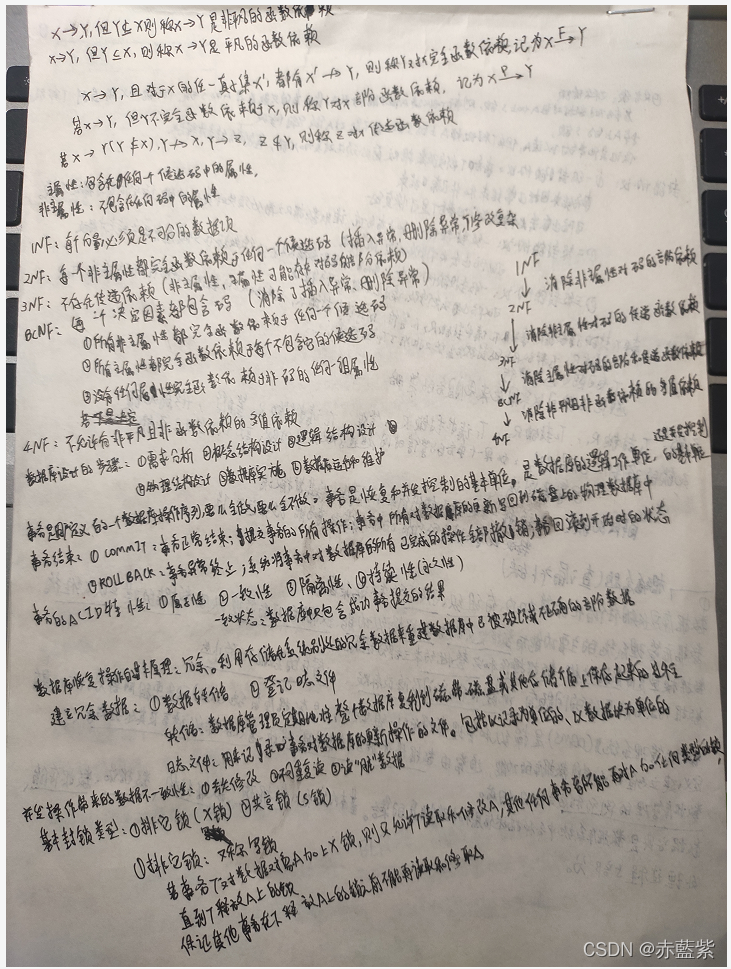 X→Y,但Y⊄X则称X→Y是非平凡的函数依赖
X→Y,但Y⊆X,则称X→Y是平凡的函数依赖
X→Y,且对于X的任一真子集X',都有X'↛Y,则称Y对X完全函数依赖,记为X F→Y
若X→Y,但Y不完全函数依赖于X,则称Y对X部分函数依赖,记为X P→Y
若X→Y(Y⊄X),Y↛X,Y→Z,Z⊄Y,则称Z对X传递函数依赖
主属性:包含在任何一个候选码中的属性。
非主属性:不包含在任何码中的属性
1NF:每个分量必须是不可分的数据项
2NF:每个非主属性都完全函数依赖于任何一个候选码(插入异常,删除异常,修改复杂
3NF:不存在传递依赖(非主属性,主属性可能存在对码的部分依赖)
BCNF:每一个决定因素都包含码(消除了插入异常、删除异常)
①所有非主属性都完全函数依赖于任何一个候选码
②所有主属性都完全函数依赖于每个不包含它的候选码
③没有任何属性完全函数依赖于非码的任何一组属性
4NF:不允许有非平凡且非函数依赖的多值依赖
1NF
消除非主属性对码的部分函数依赖
2NF
消除非主属性对码的传递函数依赖
3NF
消除主属性对码的部分和传递函数依赖
BCNF
消除非平凡且非函数依赖的多值依赖
4NF
数据库设计的步骤:①需求分析 ②概念结构设计 ③逻辑结构设计
④物理结构设计 ⑤数据库实施 ⑥数据库运行和维护
事务是用户定义的一个数据库操作序列,要么全做,要么全不做。事务是恢复和并发控制的基本单位。是数据库的逻辑工作单位,
事务结束:①COMMIT:事务正常结束;提交事务的所有操作;事务中所有对数据库的更新写回到磁盘上的物理数据库中
②ROLLBACK:事务异常终止;系统将事务中对数据库的所有已完成的操作全部撤销,事务回滚到开始时的状态
事务的ACID特性:①原子性 ②一致性 ③隔离性 ④持续性(永久性)
一致状态:数据库中只包含成功事务提交的结果
数据库恢复操作的基本原理:冗余。利用存储在系统别处的冗余数据来重建数据库中已被破坏或不正确的部分数据
建立冗余数据:①数据转储 ②登记日志文件
转储:数据库管理员定期地将整个数据库复制到磁带、磁盘或其他存储介质上保存起来的过程
日志文件:用来记录事务对数据库的更新操作的文件。包括以记录为单位的、以数据块为单位的
并发操作带来的数据不一致性:①丢失修改 ②不可重复读 ③读"脏"数据
基本封锁类型:①排它锁(X锁)②共享锁(S锁)
①排它锁:又称写锁
若事务T对数据对象A加上X锁,则只允许T读取和修改A,其他任何事务都不能再对A加任何类型的锁,
直到T释放A上的锁
保证其他事务在T释放A上的锁之前不能再读取和修改A
CSDN @赤藍紫